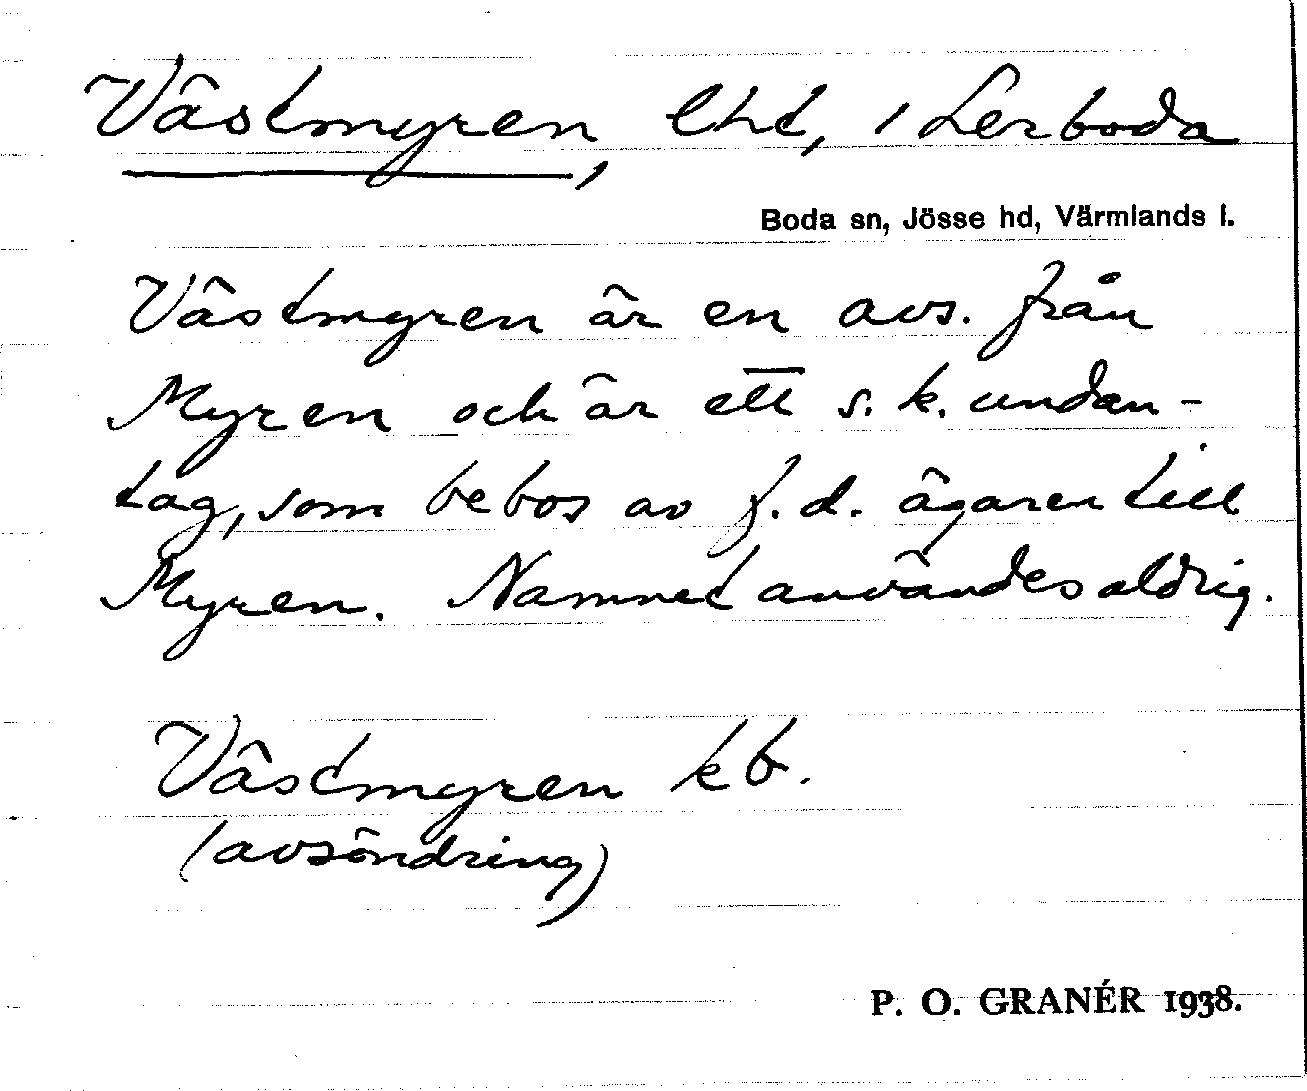 Västmyren, lht, 1 Lerboda
Boda sn, Jösse hd, Värmlands l.
Västmyren är en avs. från
Myren och är ett s.k. undan-
tag, som bebos av f.d. ägaren till
Myren. Namnet användes aldrig.
Västmyren kb.
(avsöndring)
P. O. GRANÉR 1938.